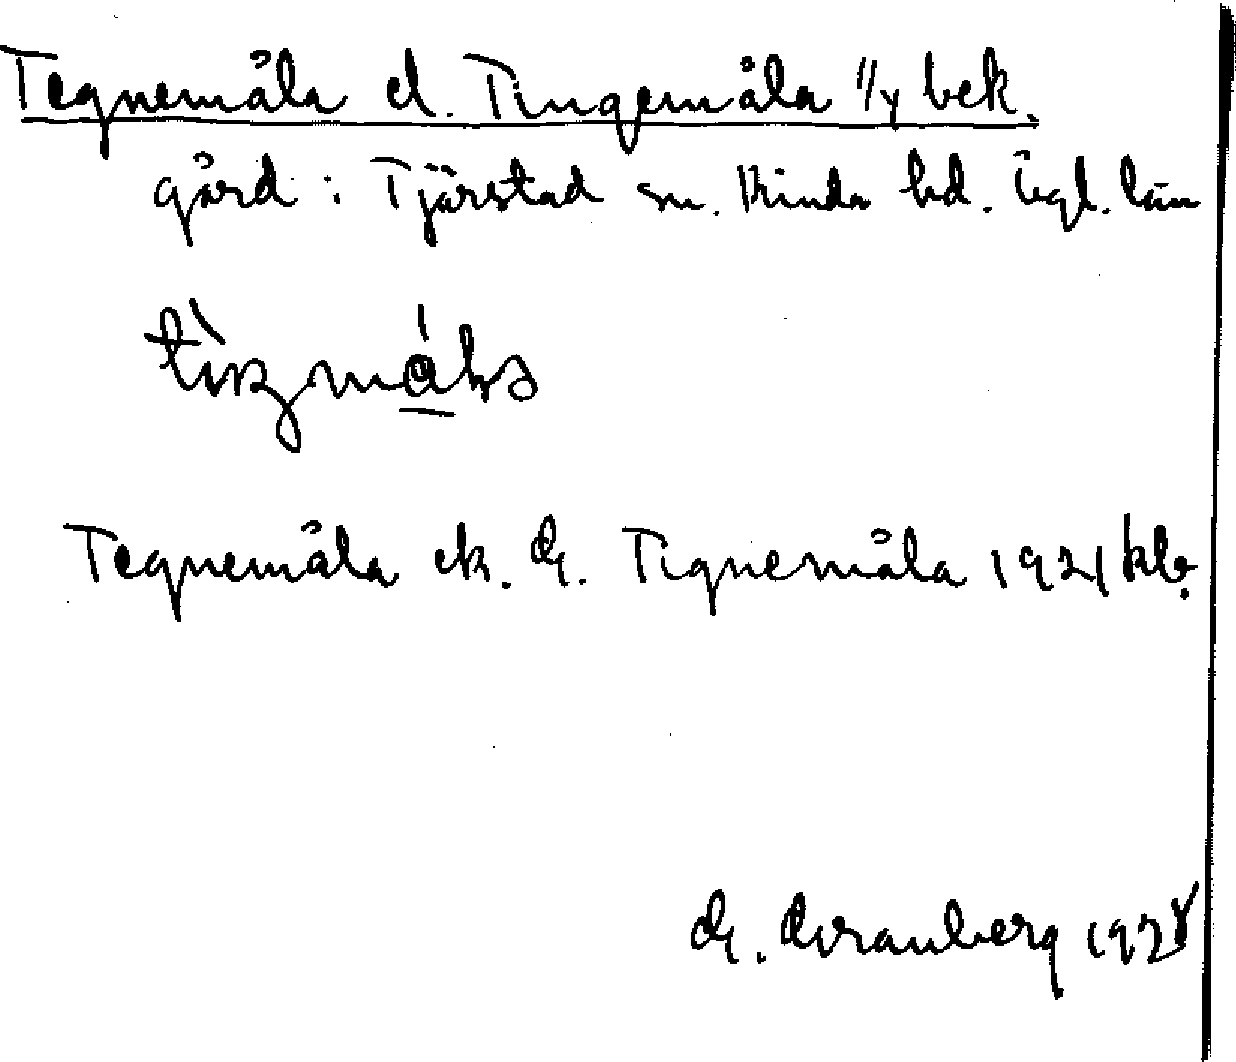 Tegnemåla el. Tingemåla 1/4 bek.
gård i Tjärstad sn. Kinda hd. Ögl. län
Tegnemåla ek. G. Tignemåla 1921 kb.
G. Granberg 1928